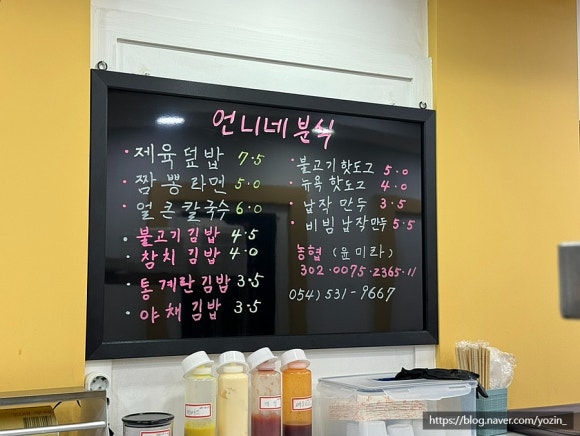 언니네 분식
제육덮밥 7.5
짬뽕라면 5.0
얼큰칼국수 6.0
불고기김밥 4.5
참치김밥 4.0
통계란김밥 3.5
야채김밥 3.5
불고기핫도그 5.0
뉴욕핫도그 4.0
납작만두 3.5
비빔납작만두 5.5
농협 (윤미라)
302.0075.2365.11
054) 531-9667
https://blog.naver.com/yozin_